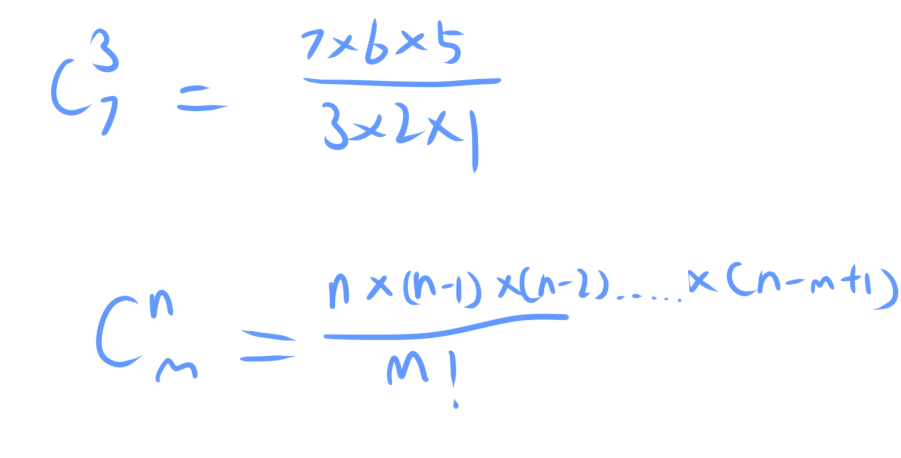 C₇³ = (7×6×5)/(3×2×1)
Cₘⁿ = (n×(n-1)×(n-2).....×(n-m+1))/(m!)